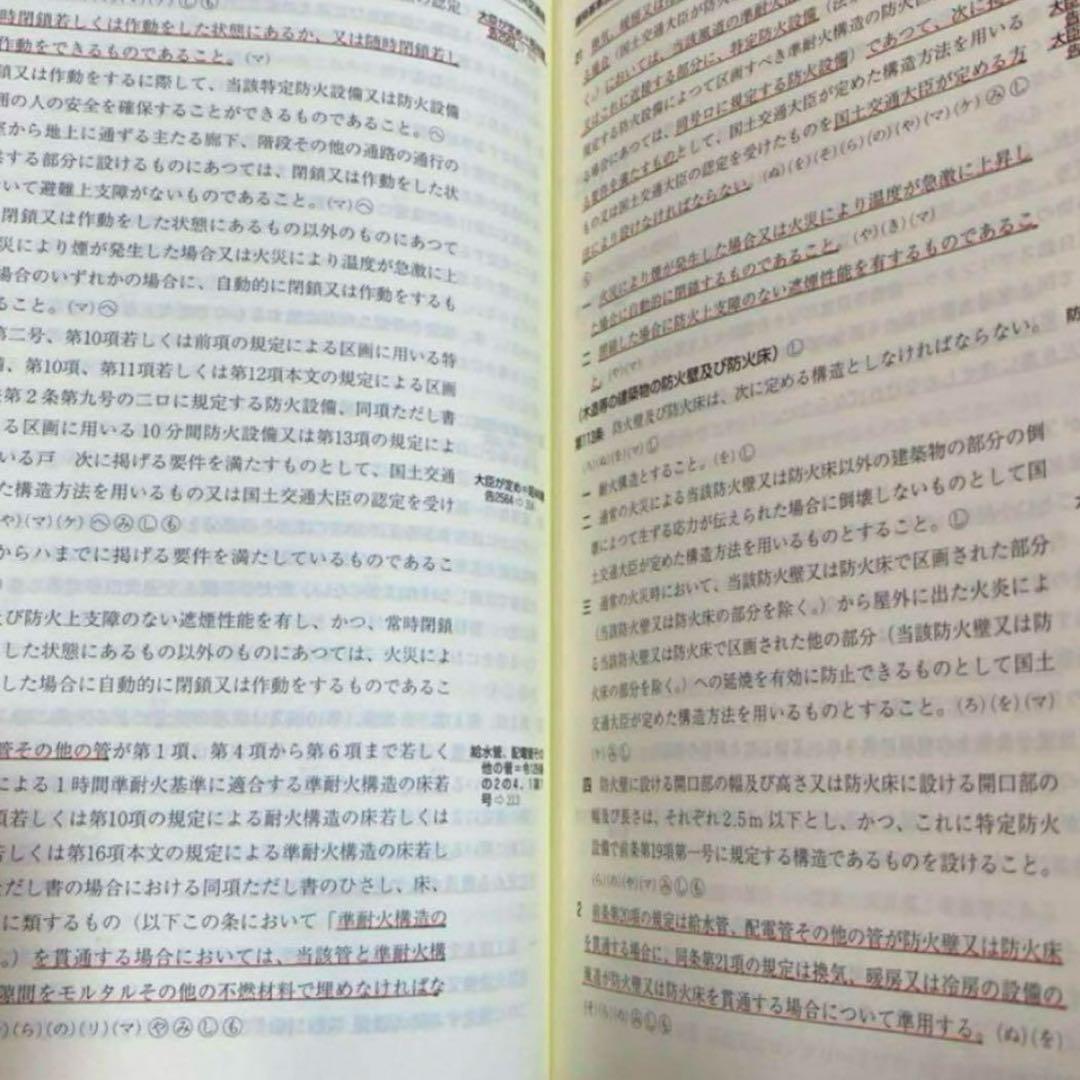 時閉鎖若しくは作動をした状態にあるか、又は随時閉鎖若し
作動をできるものであること。(マ)
鎖又は作動をするに際して、当該特定防火設備又は防火設備
囲の人の安全を確保することができるものであること。㋬
室から地上に通ずる主たる廊下、階段その他の通路の通行の
する部分に設けるものにあつては、閉鎖又は作動をした状
いて避難上支障がないものであること。(マ)㋬
閉鎖又は作動をした状態にあるもの以外のものにあつて
災により煙が発生した場合又は火災により温度が急激に上
場合のいずれかの場合に、自動的に閉鎖又は作動をするも
ること。(マ)㋬
第二号、第10項若しくは前項の規定による区画に用いる特
、第10項、第11項若しくは第12項本文の規定による区画
第2条第九号の二ロに規定する防火設備、同項ただし書
る区画に用いる10分間防火設備又は第13項の規定によ
いる戸 次に掲げる要件を満たすものとして、国土交通
た構造方法を用いるもの又は国土交通大臣の認定を受け
や)(マ)(ケ)
からハまでに掲げる要件を満たしているものであるこ
及び防火上支障のない遮煙性能を有し、かつ、常時閉鎖
した状態にあるもの以外のものにあつては、火災によ
した場合に自動的に閉鎖又は作動をするものであるこ
管その他の管が第1項、第4項から第6項まで若しく
による1時間準耐火基準に適合する準耐火構造の床若
項若しくは第10項の規定による耐火構造の床若しくは
若しくは第16項本文の規定による準耐火構造の床若し
ただし書の場合における同項ただし書のひさし、床、
に類するもの(以下この条において「準耐火構造の
。)を貫通する場合においては、当該管と準耐火構
隙間をモルタルその他の不燃材料で埋めなければな
(ら)(の)(リ)(マ)
大臣が定め
告2564⇨
給水管、配電管その
他の管=令129条
の2の4、1項
号⇨213
る場合にあつては、同号ロに規定する防火設備)であつて、次に掲げる
る要件を満たすものとして、国土交通大臣が定めた構造方法を用いる
もの又は国土交通大臣の認定を受けたものを国土交通大臣が定める方
法により設けなければならない。(ぬ)(を)(そ)(ら)(の)(や)(マ)(ケ)
一 火災により煙が発生した場合又は火災により温度が急激に上昇し
た場合に自動的に閉鎖するものであること。(や)(き)(マ)
二 閉鎖した場合に防火上支障のない遮煙性能を有するものであるこ
と。(や)(マ)
(木造等の建築物の防火壁及び防火床)
第113条 防火壁及び防火床は、次に定める構造としなければならない。
一 耐火構造とすること。(を)
二 通常の火災による当該防火壁又は防火床以外の建築物の部分の倒
壊によつて生ずる応力が伝えられた場合に倒壊しないものとして国
土交通大臣が定めた構造方法を用いるものとすること。
三 通常の火災時において、当該防火壁又は防火床で区画された部分
(当該防火壁又は防火床の部分を除く。)から屋外に出た火炎によ
る当該防火壁又は防火床で区画された他の部分(当該防火壁又は防
火床の部分を除く。)への延焼を有効に防止できるものとして国土
交通大臣が定めた構造方法を用いるものとすること。(ろ)(を)(マ)
四 防火壁に設ける開口部の幅及び高さ又は防火床に設ける開口部の
幅及び長さは、それぞれ2.5m以下とし、かつ、これに特定防火
設備で前条第19項第一号に規定する構造であるものを設けること。
(ら)(の)(や)(マ)
2 前条第20項の規定は給水管、配電管その他の管が防火壁又は防火床
を貫通する場合に、同条第21項の規定は換気、暖房又は冷房の設備の
風道が防火壁又は防火床を貫通する場合について準用する。(ぬ)(を)